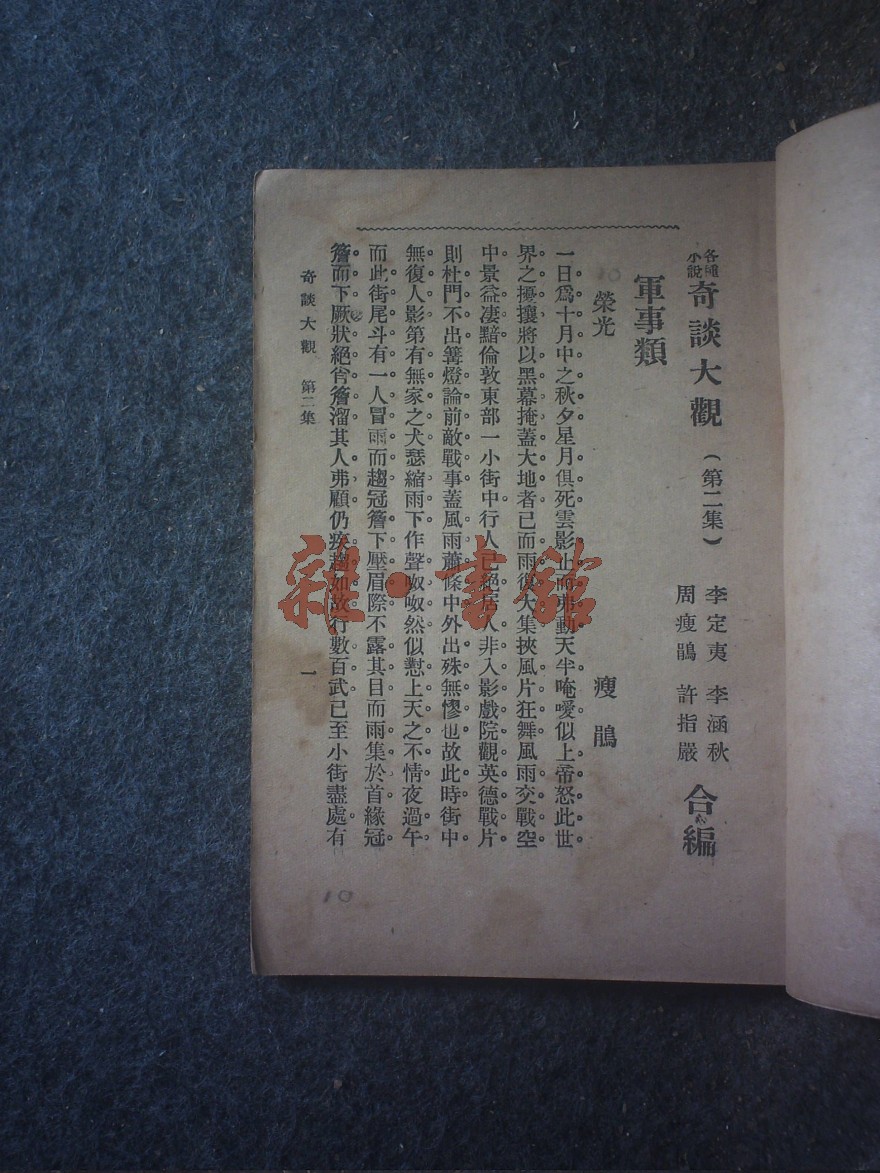 各種小說 奇談大觀（第二集）
李定夷 李涵秋
周瘦鵑 許指嚴
合編
軍事類
榮光 瘦鵑
一日爲十月中之秋夕星月俱死雲影止而弗動天半唵噯似上帝怒此世
界之擾攘將以黑幕掩蓋大地者已而雨復大集挾風片狂舞風雨交戰空
中景益凄黯倫敦東部一小街中行人已絕居人非入影戲院觀英德戰片
則杜門不出篝燈論前敵戰事蓋風雨蕭條中外出殊無憀也故此時街中
無復人影第有無家之犬瑟縮雨下作聲呶呶然似懟上天之不情夜過午
而此街尾斗有一人冒雨而趨冠簷下壓眉際不露其目而雨集於首緣冠
簷而下厥狀絕肖簷溜其人弗顧仍疾趨如故行數百武已至小街盡處有
奇談大觀 第二集
一
雜·書館
01